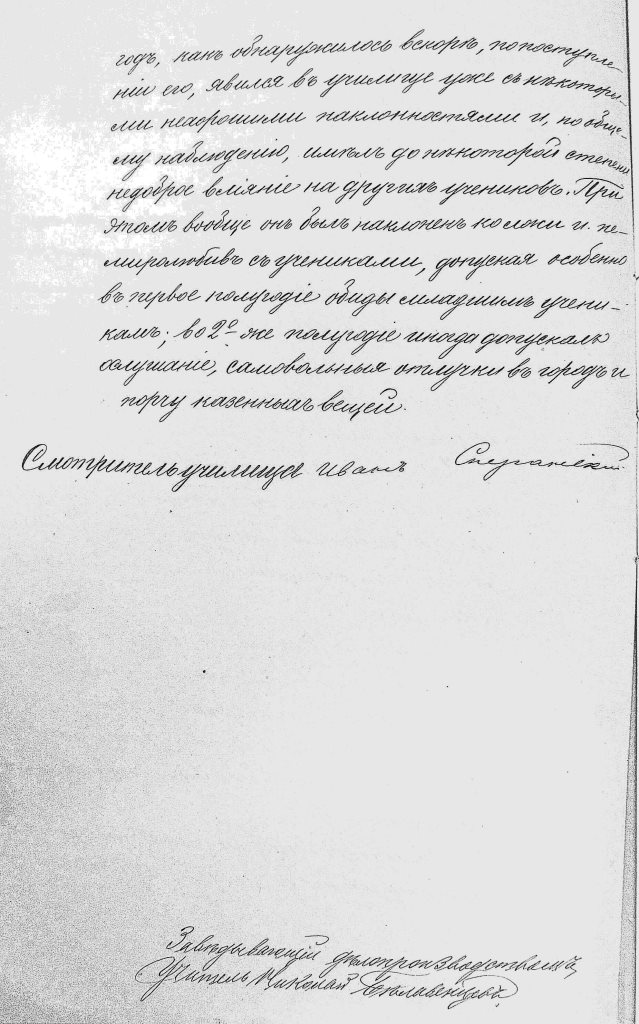 годъ, какъ обнаружилось вскорѣ, по поступле-
ніи его, явился въ училище уже съ нѣкоторы-
ми нехорошими наклонностями и, по обще-
му наблюденію, имѣлъ до нѣкоторой степени
недоброе вліяніе на другихъ учениковъ. При
этомъ вообще онъ былъ наклоненъ ко лжи и не-
миролюбивъ съ учениками, допуская особенно
въ первое полугодіе обиды младшимъ учени-
камъ; во 2е же полугодіе иногда допускалъ
ослушаніе, самовольныя отлучки въ городъ и
порчу казенныхъ вещей.
Смотритель училища Иванъ Сперанскій
Завѣдывающій дѣлопроизводствомъ,
Учитель Николай